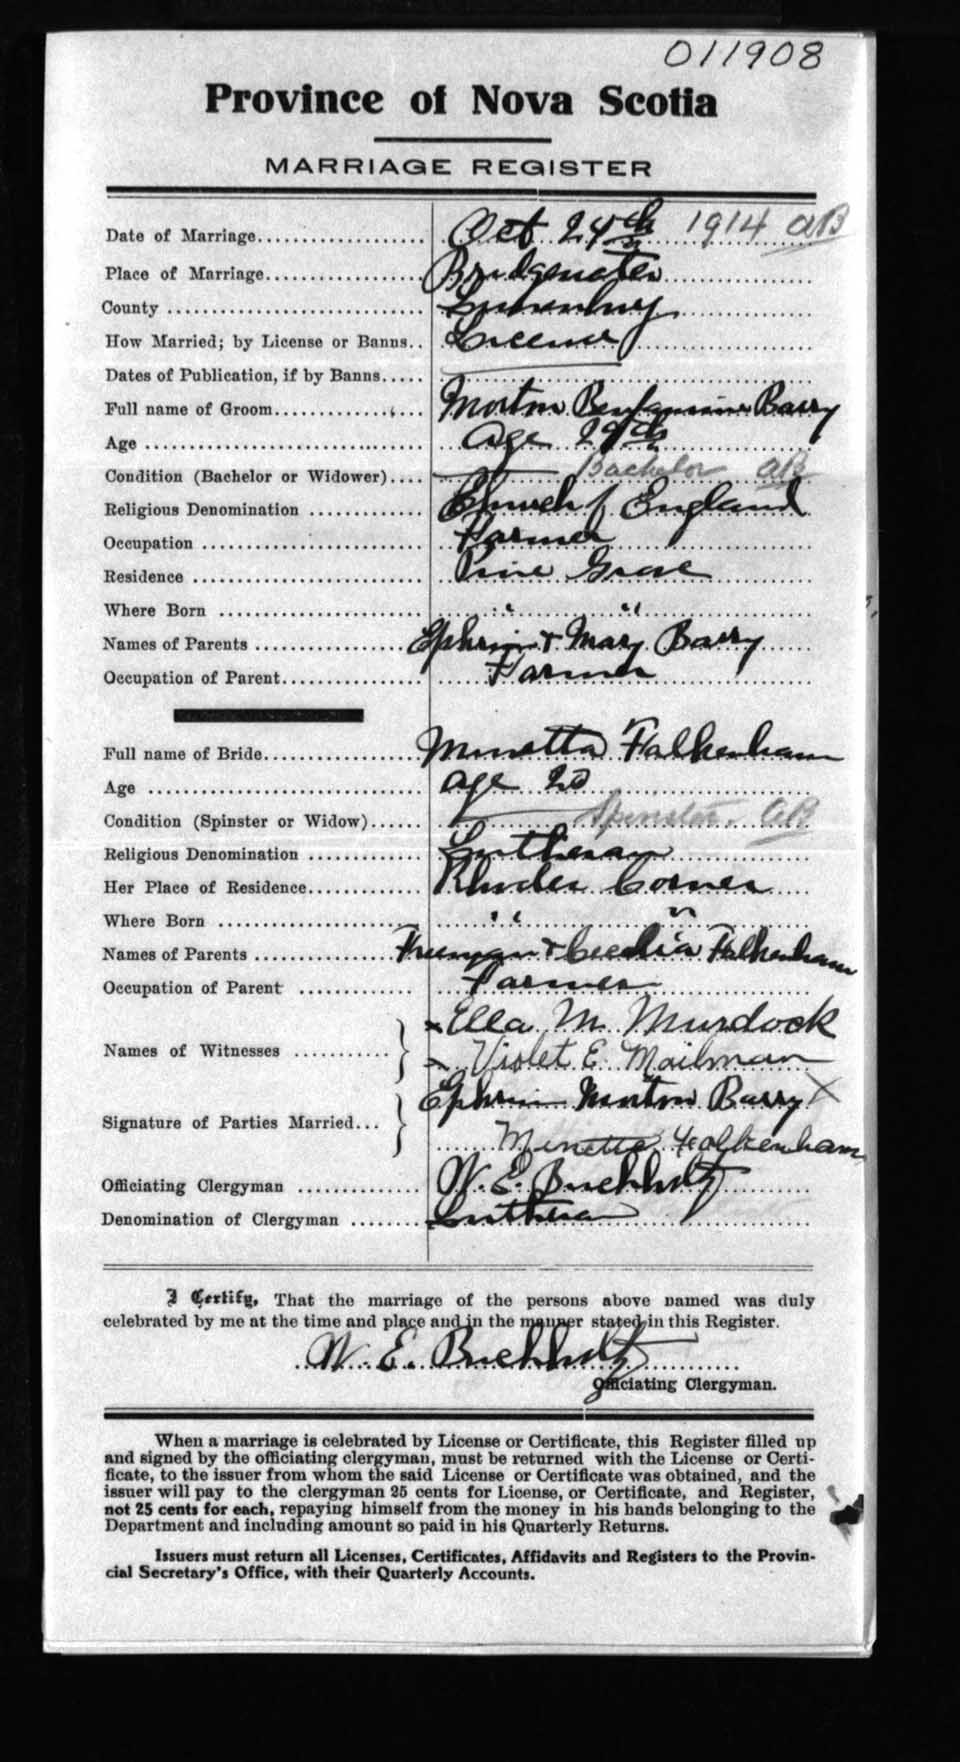 011908
Province of Nova Scotia
MARRIAGE REGISTER
Date of Marriage Oct 24th 1914 AB
Place of Marriage Bridgewater
County Lunenburg
How Married; by License or Banns License
Dates of Publication, if by Banns
Full name of Groom Morton Benjamin Barry
Age age 29th
Condition (Bachelor or Widower) Bachelor AB
Religious Denomination Church of England
Occupation Farmer
Residence Pine Grove
Where Born " "
Names of Parents Ephrim & Mary Barry
Occupation of Parent Farmer
Full name of Bride Minetta Falkenham
Age age 20
Condition (Spinster or Widow) Spinster. AB
Religious Denomination Lutheran
Her Place of Residence Rhodes Corner
Where Born " "
Names of Parents Freeman & Ceclia Falkenham
Occupation of Parent Farmer
Names of Witnesses x Ella M. Murdock
x Violet E. Mailman
Signature of Parties Married Ephrim Morton Barry X
Minetta Falkenham
Officiating Clergyman W. E. Buchholtz
Denomination of Clergyman Lutheran
I Certify, That the marriage of the persons above named was duly
celebrated by me at the time and place and in the manner stated in this Register.
W. E. Buchholtz
Officiating Clergyman.
When a marriage is celebrated by License or Certificate, this Register filled up
and signed by the officiating clergyman, must be returned with the License or Certi-
ficate, to the issuer from whom the said License or Certificate was obtained, and the
issuer will pay to the clergyman 25 cents for License, or Certificate, and Register,
not 25 cents for each, repaying himself from the money in his hands belonging to the
Department and including amount so paid in his Quarterly Returns.
Issuers must return all Licenses, Certificates, Affidavits and Registers to the Provin-
cial Secretary's Office, with their Quarterly Accounts.